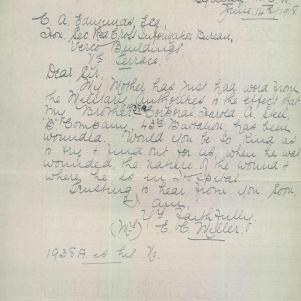 June 14th/1918
C. A. Edmunds, Esq,
Hon Sec Red Cross Information Bureau,
Verco Buildings
Nth Terrace.
Dear Sir,
My Mother has just had word from
the Military authorities to the effect that
my Brother Corporal Harold A.
B Company, 43rd Battalion has been
wounded. Would you be so kind as
to try & find out for us when he was
wounded, the nature of the wound &
where he is in Hospital
Trusting to hear from you soon,
I am,
Yrs Faithfully
(Mrs) E. C. Miller.
1938A is his No.